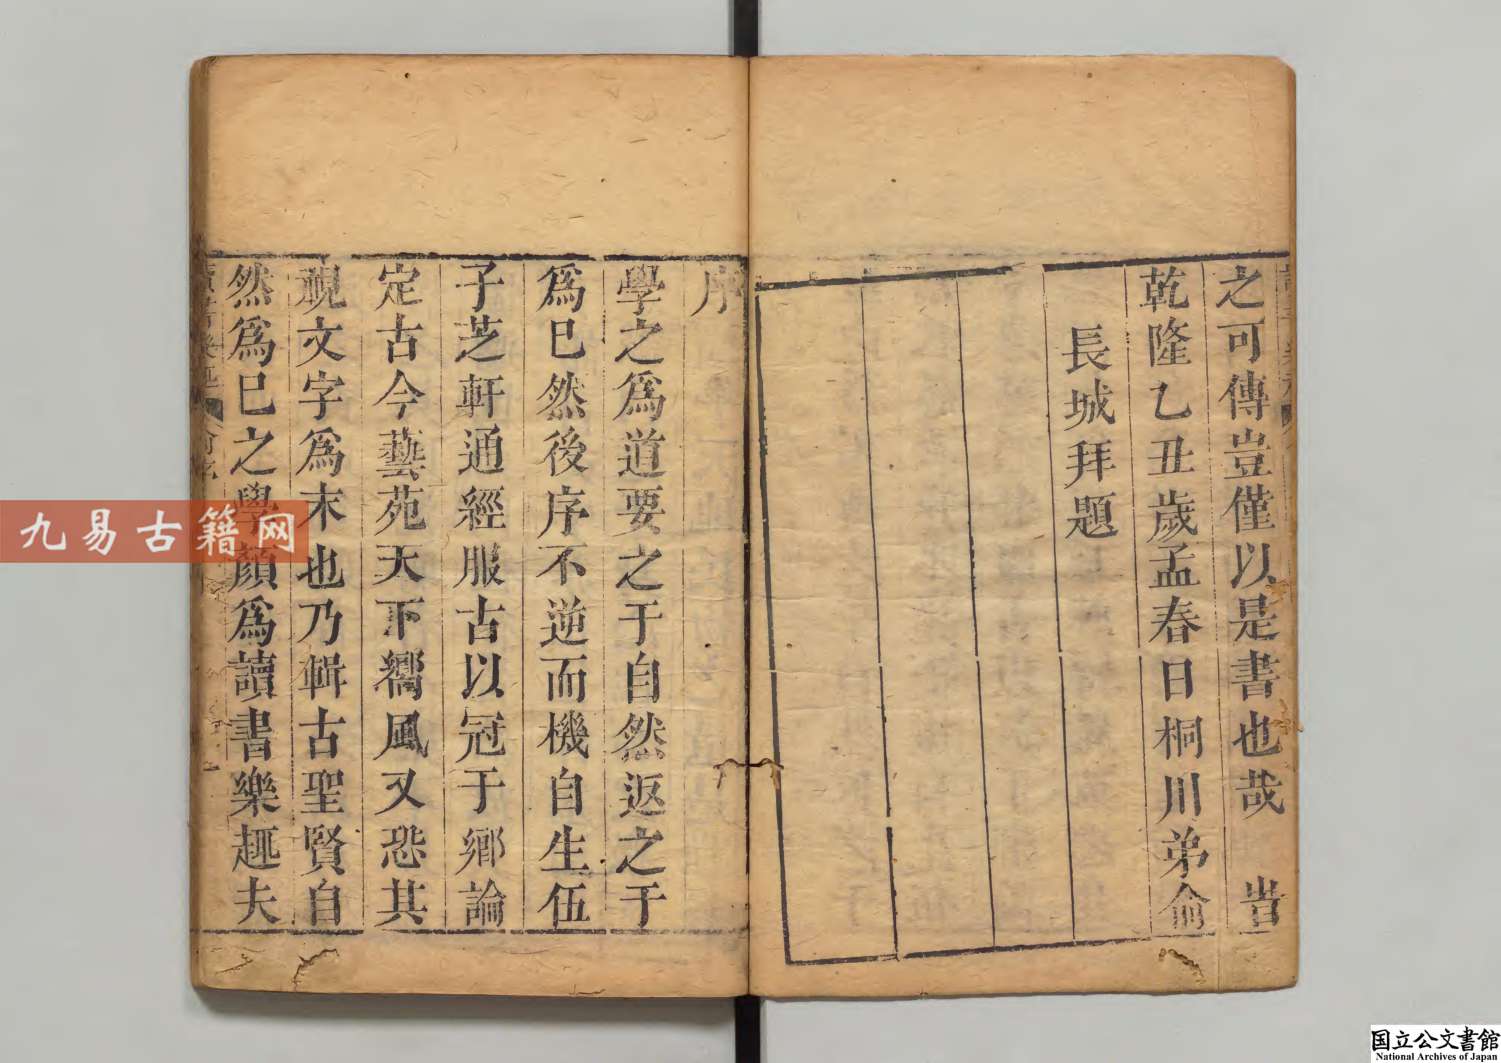 之可傳豈僅以是書也哉　旹
乾隆乙丑歲孟春日桐川弟俞
長城拜題
序
學之爲道要之于自然返之于
爲已然後序不逆而機自生伍
子芝軒通經服古以冠于鄉論
定古今藝苑天下嚮風又恐其
視文字爲末也乃輯古聖賢自
然爲巳之學顏爲讀書樂趣夫
九易古籍网
国立公文書館
National Archives of Japan